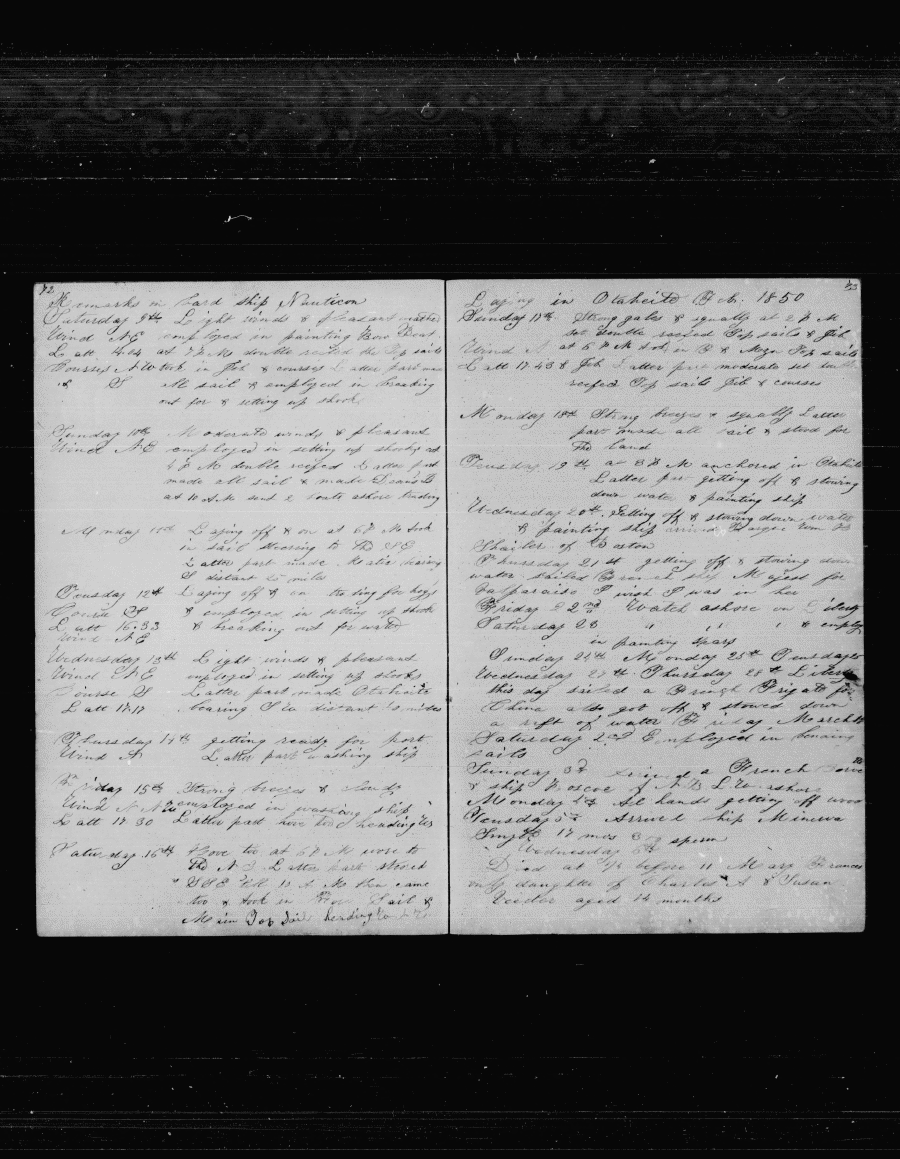 72
Remarks on Bord ship Nauticon
Saturday 9th Light winds & pleasant weather
Wind NE employed in painting Bow Boat
Latt 14.14 at 7 P M double reefed the Top sails
Courses NW took in Jib & courses Latter part made
& S All sail & employed in breaking
out for & setting up shooks
Sunday 10th Moderate winds & pleasant
Wind NE employed in setting up shooks at
P M double reefed Latter part
made all sail & made
at 10 A M sent 2 boats ashore trading
Monday 11th Laying off & on at 6 P M took
in sail steering to the SE
Latter part made bearing
S distant miles
Tuesday 12th Laying off & on trading for hogs
Course & employed in setting up shooks
Latt 16.33 & breaking out for water
Wind NE
Wednesday 13th Light winds & pleasant
Wind NE employed in setting up shooks
Course S Latter part made Otaheite
Latt 17.17 bearing SW distant miles
Thursday 14th getting ready for port
Wind N Latter part washing ship
Friday 15th Strong breezes & cloudy
Wind N employed in washing ship
Latt 17 30 Latter part hove too heading
Saturday 16th Hove too at 6 P M wore to
the N Latter part steered
SSE till 10 A M then came
too & took in Fore Sail &
Main Top Sail heading
73
Laying in Otaheite Feb. 1850
Sunday 17th Strong gales & squally at 2 P M
set double reefed Top sails & Jib
Wind N at 6 P M took in F & Mizn Top sails
Latt 17.43 & Jib Latter part moderate set double
reefed Top sails Jib & courses
Monday 18th Strong breezes & squally Latter
part made all sail & stood for
the land
Tuesday 19th at 3 P M anchored in Otaheite
Latter part getting off & stowing
down water & painting ship
Wednesday 20th Getting off & stowing down water
& painting ship arrived Barque Wm
Shailer of Boston
Thursday 21st getting off & stowing down
water sailed French ship Majest for
Valparaiso I wish I was in her
Friday 22nd Watch ashore on Liberty
Saturday 23 " " " & employ
in painting spars
Sunday 24th Monday 25th Tuesday 26
Wednesday 27th Thursday 28th Liberty
this day sailed a French Frigate for
China also got off & stowed down
a raft of water Friday March 1st
Saturday 2nd Employed in bending
sails
Sunday 3d arrived a French
& ship Roscoe of N B LW ashore
Monday 4th All hands getting off wood
Tuesday 5th Arrived ship Minerva
Smyth 17 mos 300 sperm
Wednesday 6th
Died at 1/4 before 11 Mary Frances
only daughter of Charles A & Susan
Veeder aged 14 months